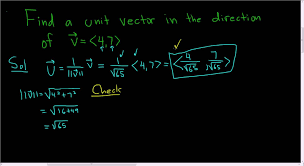 Find a unit vector in the direction
of v⃗ = <4,7>
Sol u⃗ = 1/||v⃗|| v⃗ = 1/√65 <4,7> = <4/√65, 7/√65>
||v⃗|| = √4²+7² Check
= √16+49
= √65